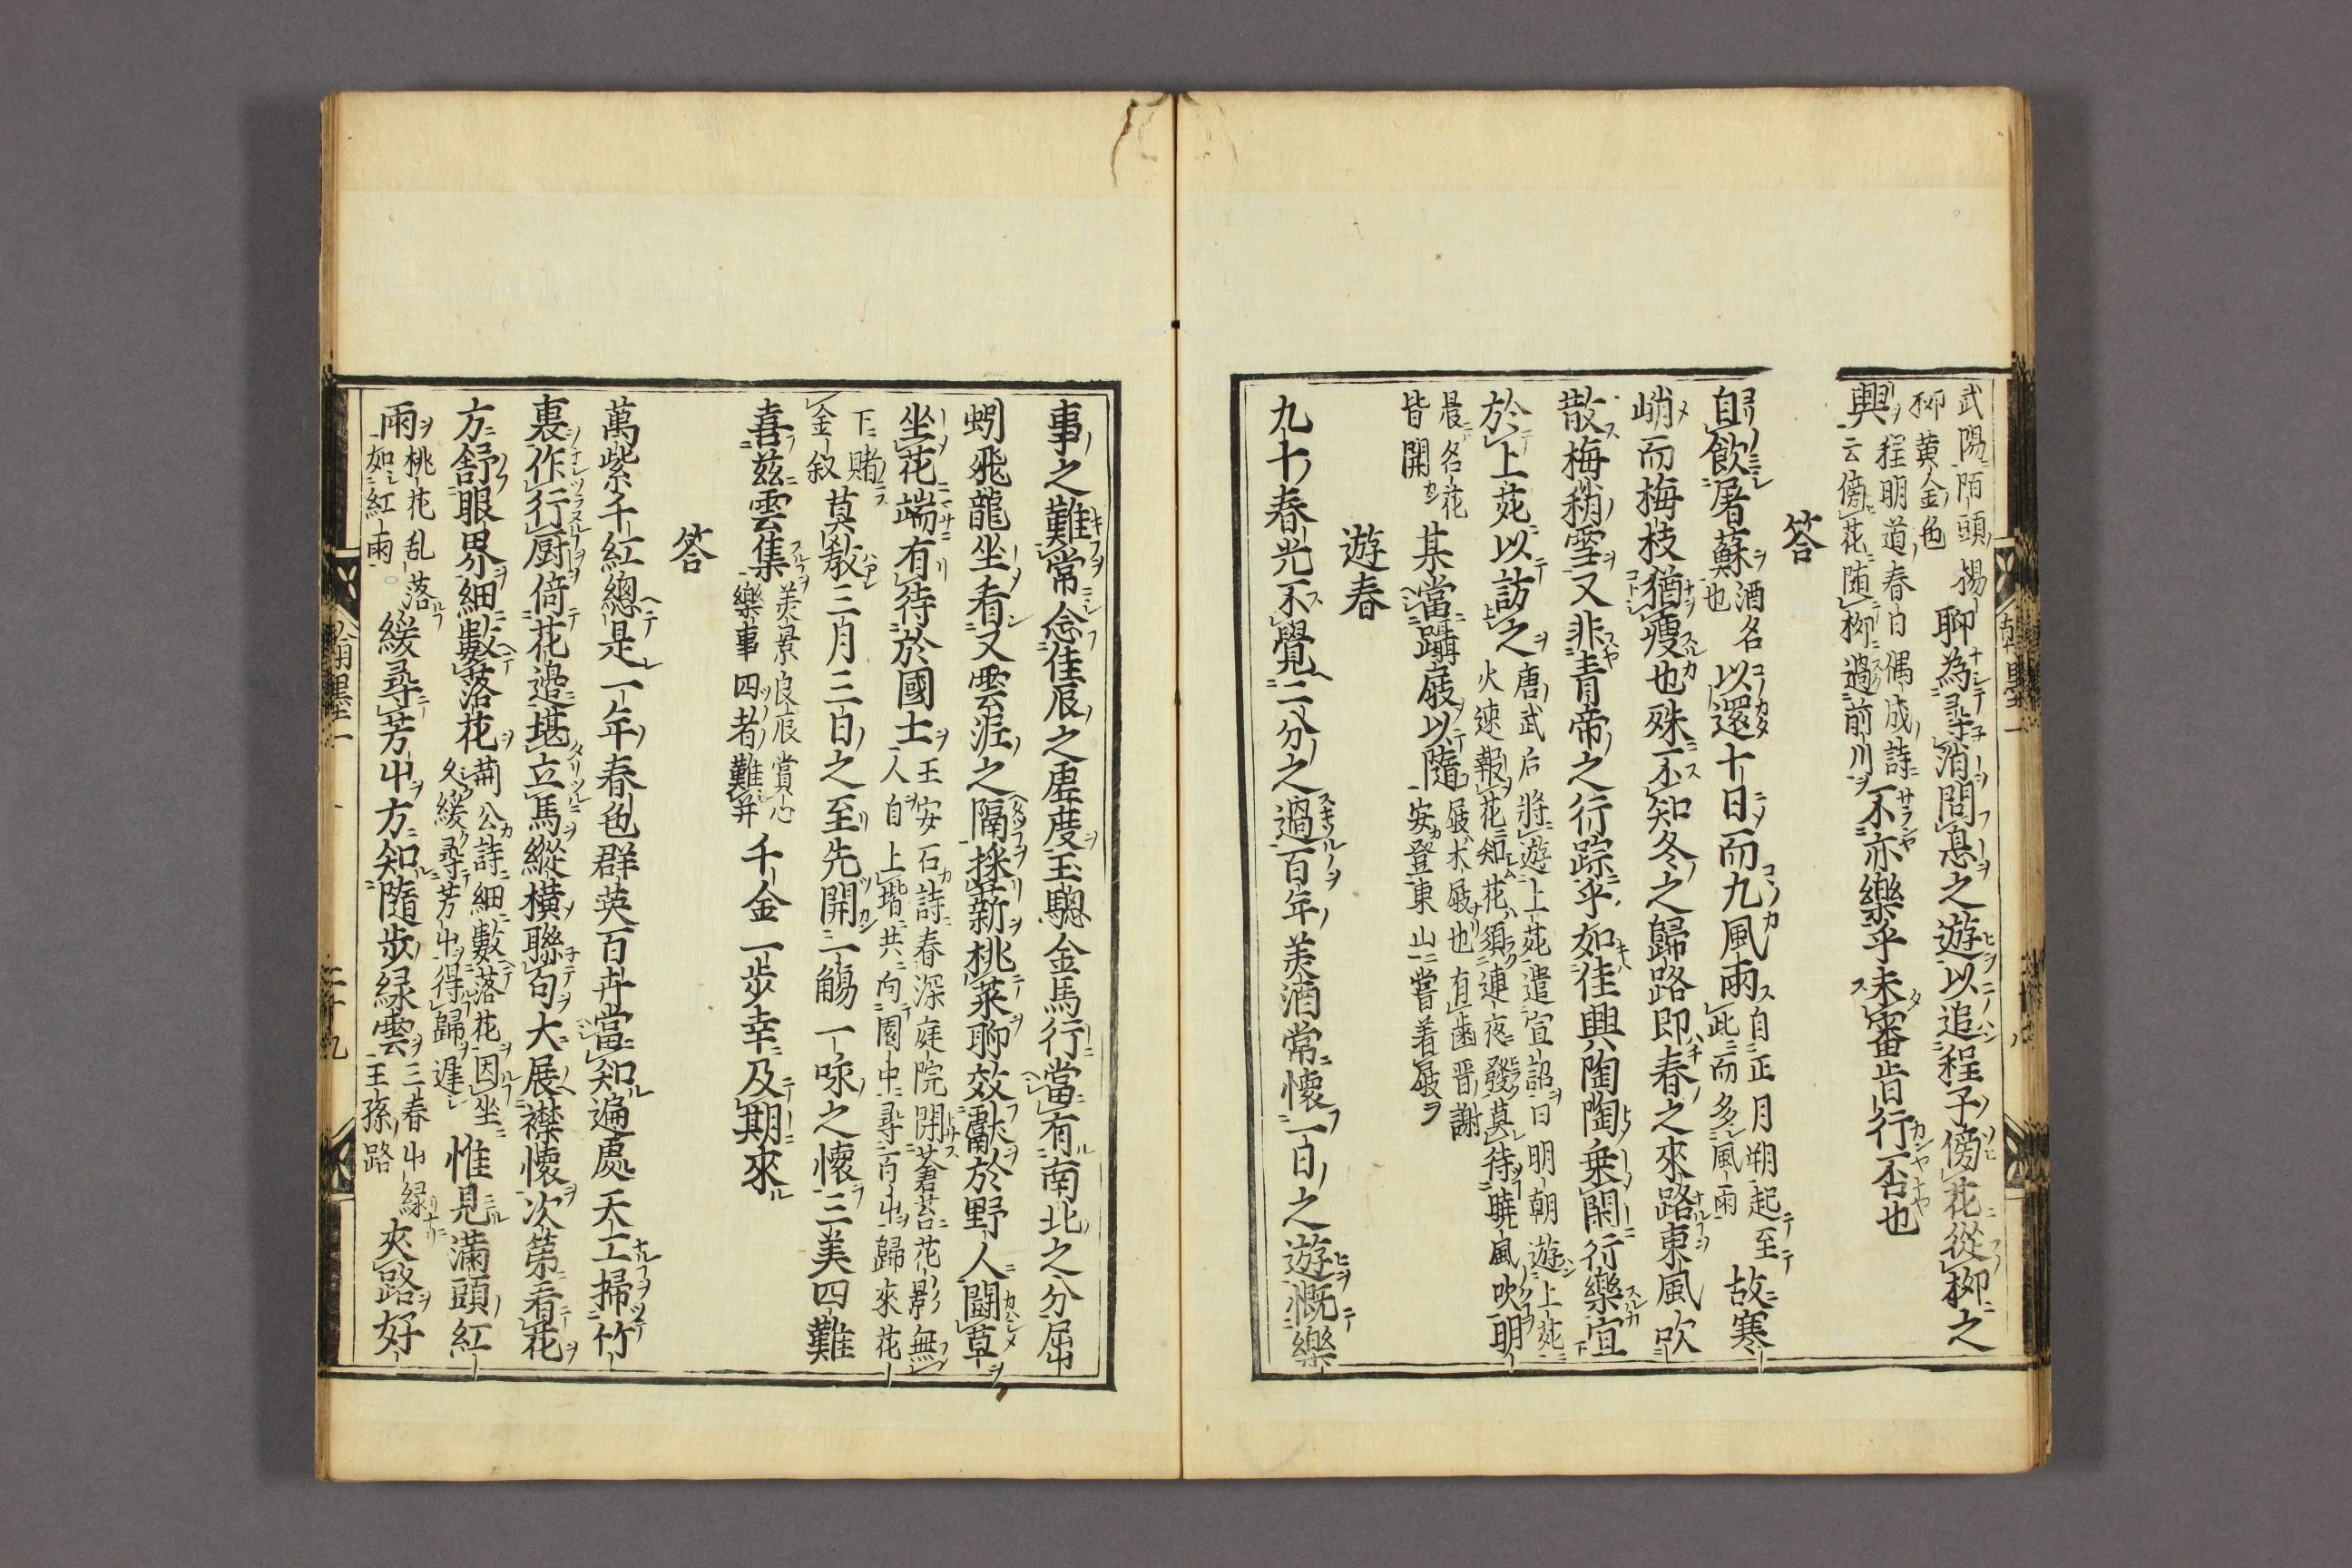 武陽陌頭楊
柳黄金色
聊為尋消問息之遊以追程子傍花從柳之
興
程明道春日偶成詩
云傍花随柳過前川
不亦樂乎未審肯行否也
答
自飲屠蘇
酒名
也
以還十日而九風雨
自正月朔起至
此而多風雨
故寒
峭而梅枝猶瘦也殊不知冬之歸路即春之來路東風吹
散梅稍雪又非青帝之行踪乎如佳興陶陶乗閑行樂宜
於上苑以訪之
唐武后將遊上苑遣宣詔曰明朝遊上苑
火速報花知花須連夜發莫待曉風吹明
晨名花
皆開
某當躡屐以隨
屐木屐也有歯晋謝
安登東山嘗着屐
遊春
九十春光不覺二分之過百年美酒常懷一日之遊慨樂
事之難常念佳辰之虚度玉驄金馬行當有南北之分屈
蚓飛龍坐看又雲泥之隔採薪桃菜聊效獻於野人闘草
坐花端有待於國士
王安石詩春深庭院閉蒼苔花影無
人自上堦共向園中尋百屮歸來花
下賭
金釵
莫教三月三日之至先開一觴一咏之懷三美四難
喜茲雲集
美景良辰賞心
樂事四者難并
千金一步幸及期來
答
萬紫千紅總是一年春色群英百卉當知遍處天工掃竹
裏作行厨倚花邉堪立馬縱横聯句大展襟懷次第看花
方舒眼界細數落花
荊公詩細數落花因坐
久緩尋芳屮得歸遲
惟見滿頭紅
雨
桃花乱落
如紅雨
緩尋芳屮方知隨步緑雲
三春屮緑
王孫路
夾路好
翰墨一
二十九